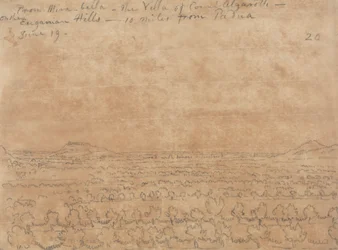 From Mira Vella - the Villa of Count Algarotti -
Euganean Hills - 10 miles from Padua
June 19 -
20